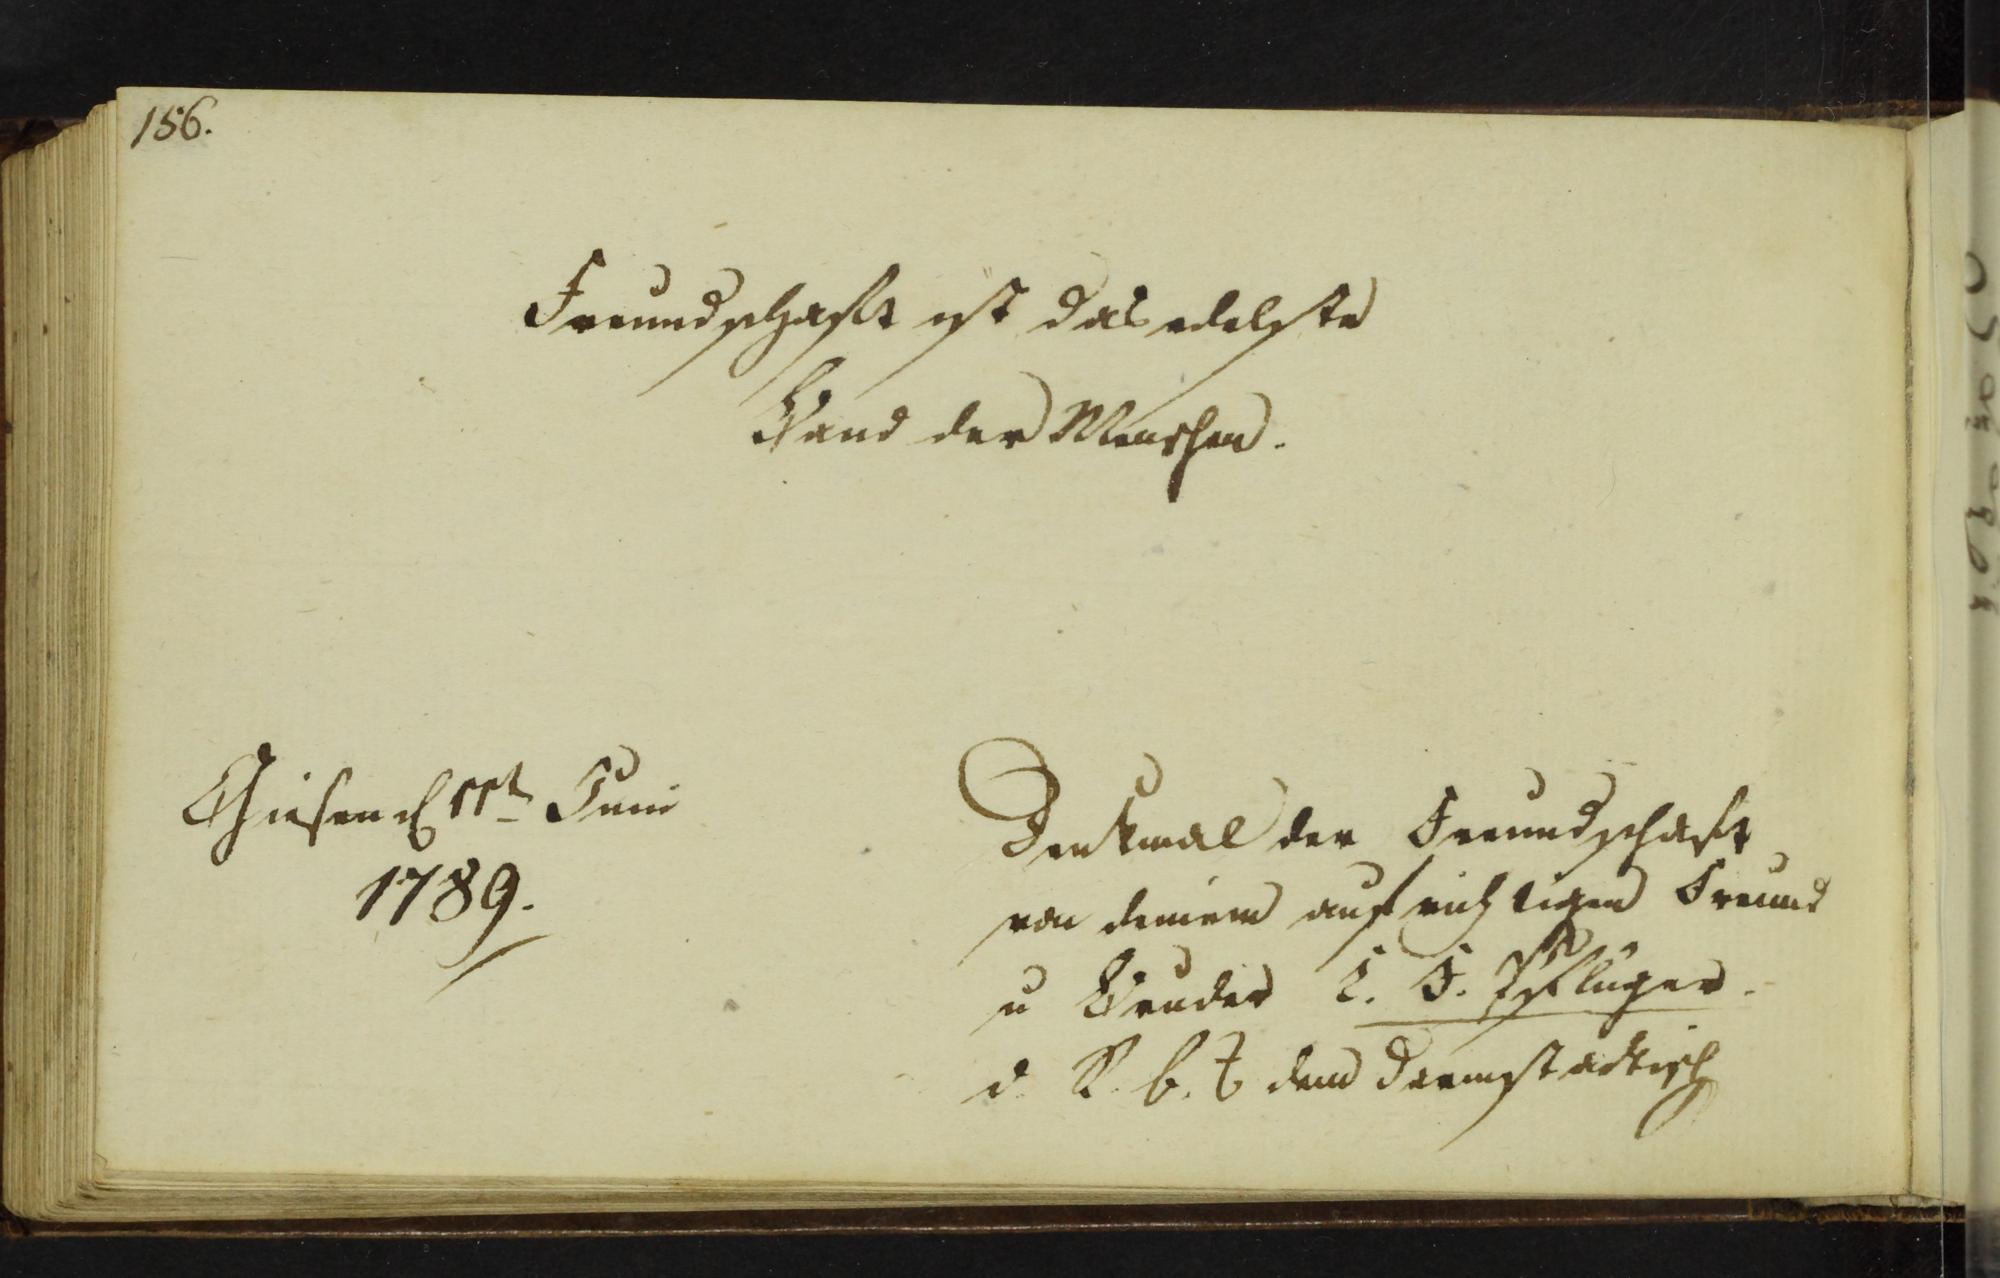 156.
Freundschaft ist das edelste
Band der Menschen.
Giesen d 11t Juni
1789.
Denkmal der Freundschaft
von deinem aufrichtigen Freund
u Bruder C. F. Pflüger.
d. R. b. aus dem Darmstädtisch